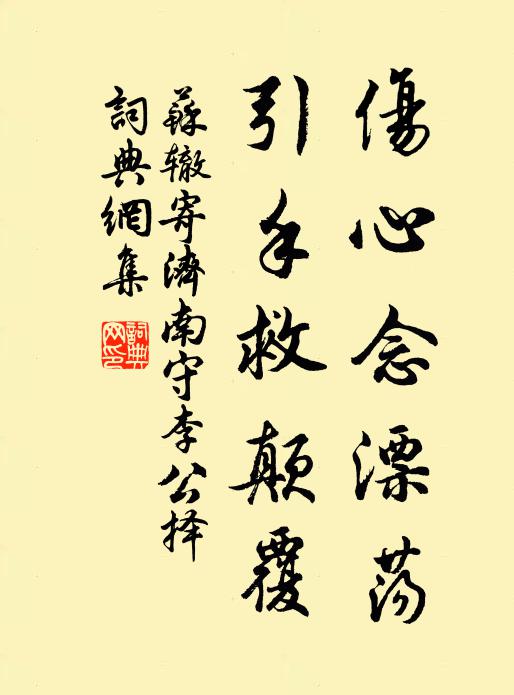 傷心念漂蕩
引手救顛覆
蘇辙寄濟南守李公择
詞典網集
詞典网印